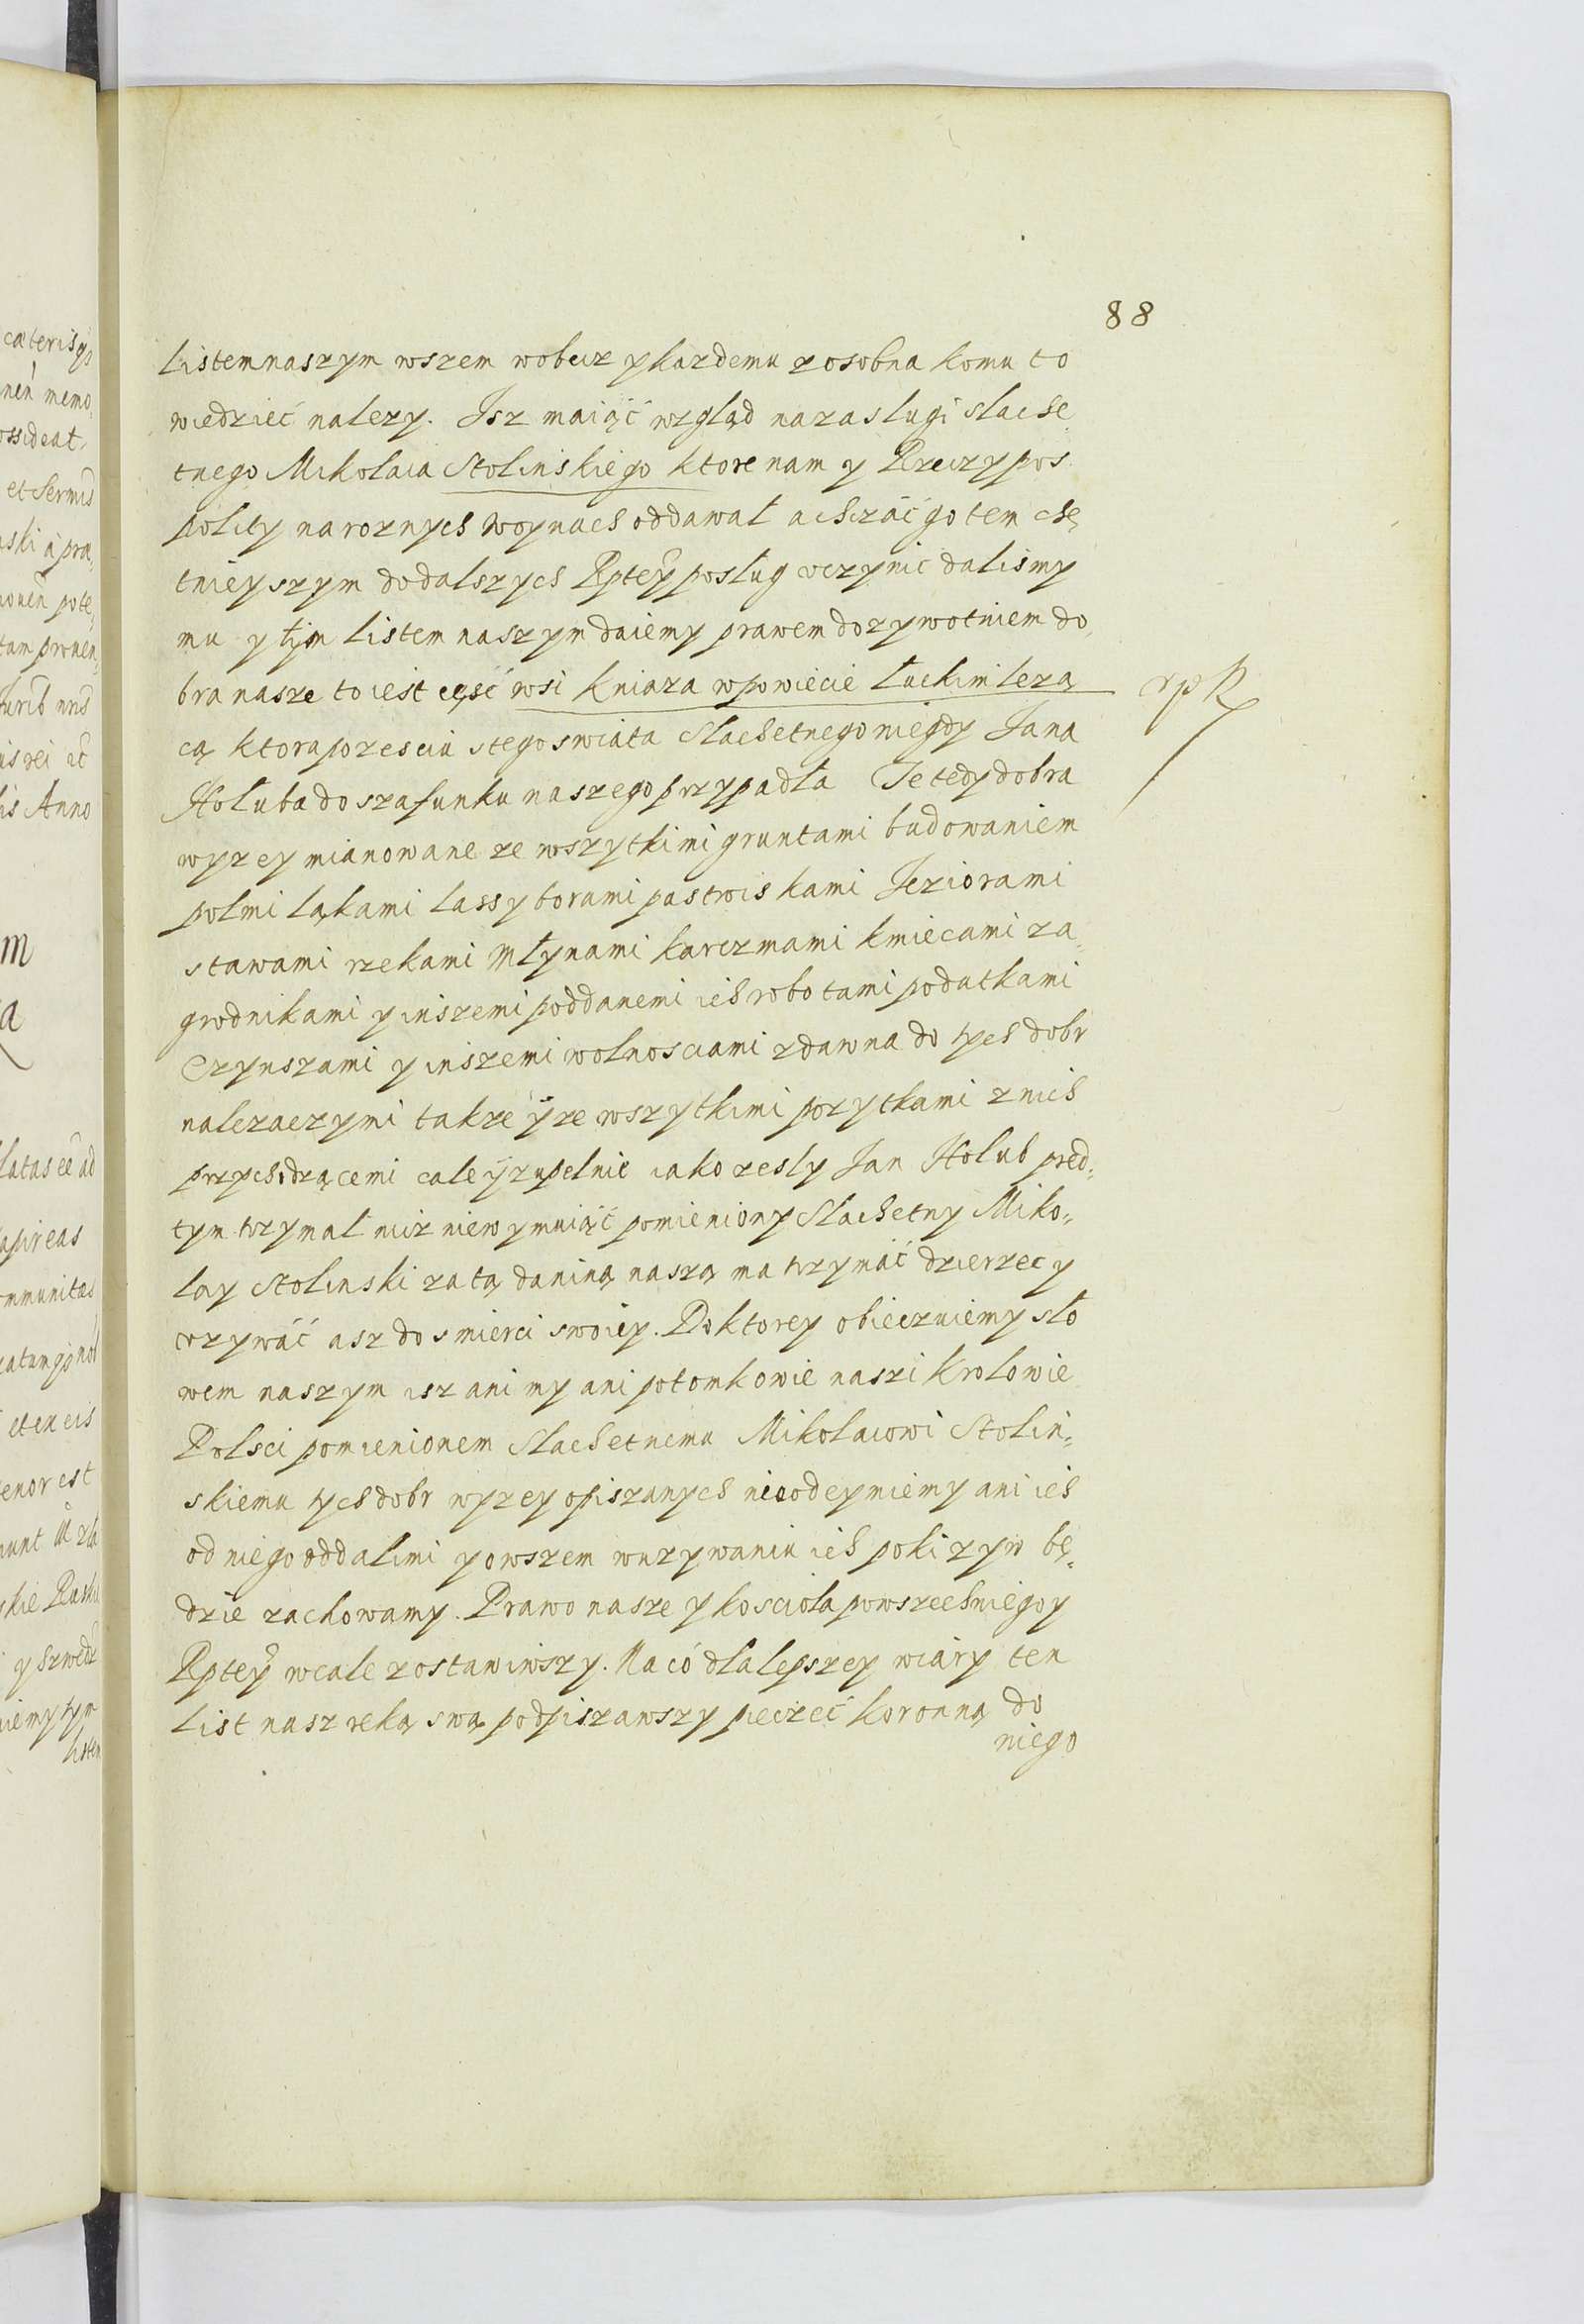 88
listem naszym wszem wobecz y kazdemu z osobna komu to
wiedzieć nalezy. Isz maiąć wzgląd na zaslugi slache
tnego Mikolaia Stolinskiego ktore nam y Rzeczypos
politÿ na roznych woynach oddawał a chcząć go tem chę
tnieyszym do dalszych Rptey posług uczynic dalismy
mu y tym listem naszym daiemy prawem dozywotniem do
bra nasze to iest cęść wsi kniaza w powiecie Łuckim lezą
cą ktora po zesciu s tego swiata Slachetnego niegdy Jana
Hołuba do szafunku naszego przypadła Te tedy dobra
wyzey mianowane ze wszytkimi gruntami budowaniem
polmi ląkami lassy borami pastwiskami Jeziorami
stawami rzekami Młynami karczmami kmiecami za
grodnikami y inszemi poddanemi ich robotami podatkami
Czynszami y inszemi wolnosciami zdawna do tych dobr
nalezaczymi takze ÿ ze wszytkimi pozytkami z nich
przychodzącemi cale ÿ zupełnie iako zesly Jan Holub pred-
tym trzymał nicz niewymuiąć pomieniony Slachetny Miko-
lay Stolinski za tą daniną naszą ma trzymáć dzierzec y
uzywáć asz do smierci swoiey. Po ktorey obiecuiemy sło
wem naszym isz ani my ani potomkowie naszi krolowie
Polsci pomienionem Slachetnemu Mikolaiowi Stolin-
skiemu tych dobr wyzey opiszanych nieodeymiemy ani ich
od niego oddalimi y owszem w uzywaniu ich poki zyw bę-
dzie zachowamy. Prawo nasze y kosciola powszechniego y
Rptey wcale zostawiwszy. Na có dla lepszey wiáry ten
list nasz reką swą podpiszawszy pieczeć koronną do
niego
caeteris
nen memo
ossideat
et Sermis
aski a prae
tam proven
is rei
is Anno
m
a
latas ee ad
apireas
mmunitas
et ex eis
enor est
skie Ruskie
y Szwedz
iemy tym
listem